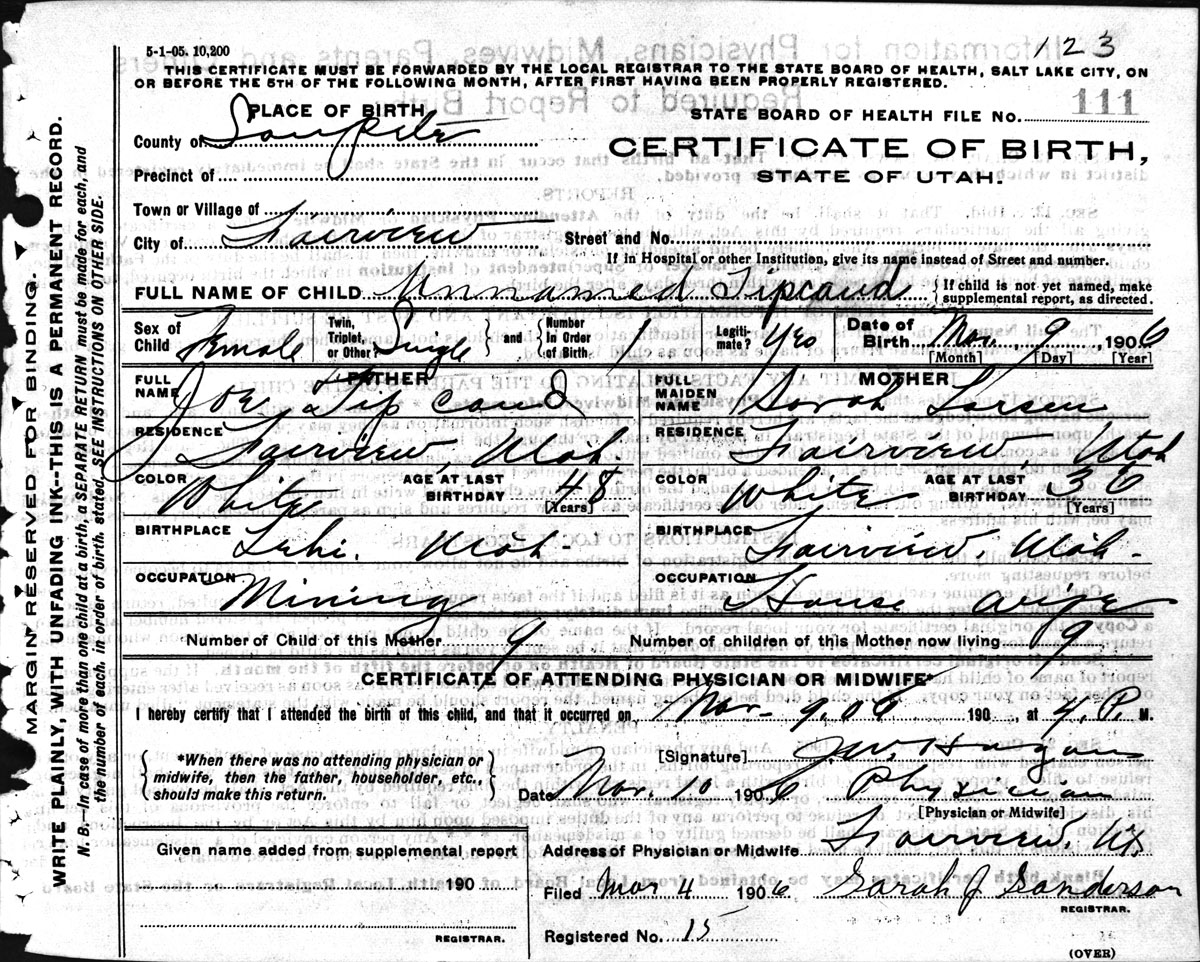 123
5-1-05. 10,200
THIS CERTIFICATE MUST BE FORWARDED BY THE LOCAL REGISTRAR TO THE STATE BOARD OF HEALTH, SALT LAKE CITY, ON
OR BEFORE THE 5TH OF THE FOLLOWING MONTH, AFTER FIRST HAVING BEEN PROPERLY REGISTERED.
PLACE OF BIRTH
STATE BOARD OF HEALTH FILE No. 111
County of Sanpete
CERTIFICATE OF BIRTH,
Precinct of
STATE OF UTAH.
Town or Village of
City of Fairview Street and No.
If in Hospital or other Institution, give its name instead of Street and number.
FULL NAME OF CHILD Unnamed Tipcaud {If child is not yet named, make supplemental report, as directed.
Sex of Child Female Twin, Triplet, or Other? Single and Number In Order of Birth 1 Legiti-mate? Yes Date of Birth Mar. 9 1906
[Month] [Day] [Year]
FATHER MOTHER
FULL NAME Joe Tipcaud FULL MAIDEN NAME Sarah Larsen
RESIDENCE Fairview, Utah RESIDENCE Fairview, Utah
COLOR White AGE AT LAST BIRTHDAY 48 [Years] COLOR White AGE AT LAST BIRTHDAY 36 [Years]
BIRTHPLACE Lehi. Utah- BIRTHPLACE Fairview, Utah-
OCCUPATION Mining OCCUPATION House wife
Number of Child of this Mother 9 Number of children of this Mother now living 9
CERTIFICATE OF ATTENDING PHYSICIAN OR MIDWIFE*
I hereby certify that I attended the birth of this child, and that it occurred on Mar- 9, 06 190 , at 4 P. M.
*When there was no attending physician or midwife, then the father, householder, etc., should make this return.
[Signature] J.W. Hagan
Date Mar. 10 1906 Physician
[Physician or Midwife]
Given name added from supplemental report
Address of Physician or Midwife Fairview, Ut.
190
Filed Mar 4 1906 Sarah J Sanderson
REGISTRAR.
REGISTRAR.
Registered No. 15
(OVER)
MARGIN RESERVED FOR BINDING.
WRITE PLAINLY, WITH UNFADING INK--THIS IS A PERMANENT RECORD.
N. B.—In case of more than one child at a birth, a SEPARATE RETURN must be made for each, and
the number of each, in order of birth, stated. SEE INSTRUCTIONS ON OTHER SIDE.